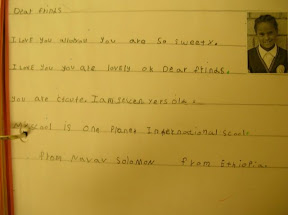 Dear frinds
I Love you you are so sweetx.
I Love you you are lovely ok Dear frinds.
you are I am seven yers old.
scool is One Planet International Scool
from Solomon from Ethiopia